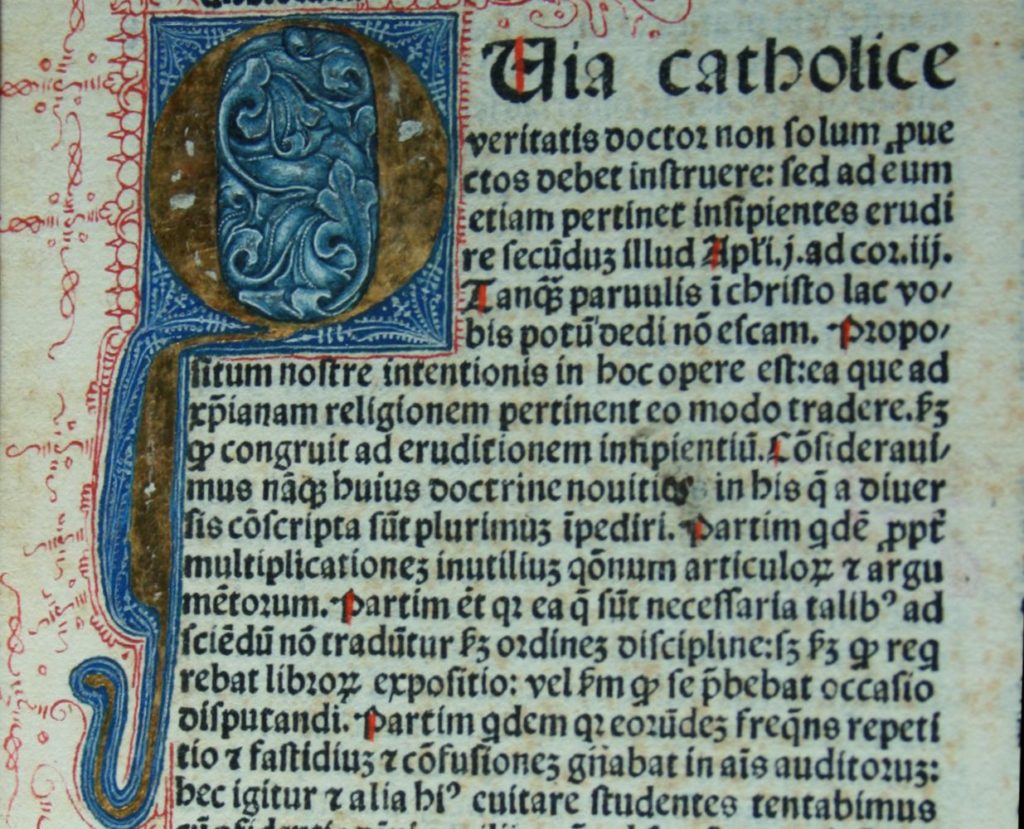 QUia catholice
veritatis doctor non ſolum ꝓue
ctos debet inſtruere: ſed ad eum
etiam pertinet inſipientes erudi
re ſecūduꝫ illud Apłi.j.ad coꝛ.iij.
Tanqꝫ̄ paruulis ī chriſto lac vo⸗
bis potū dedi nō eſcam. Propo⸗
ſitum noſtre intentionis in hoc opere eſt:ea que ad
xp̄ianam religionem pertinent eo modo tradere.ẜꝫ
ꝙ congruit ad eruditionem inſipientiū.Cōſideraui⸗
mus nāqꝫ huius doctrine nouitios in his q̄ a diuer
ſis cōſcripta ſūt plurimuꝫ īpediri. Partim qdē ꝓpt̄
multiplicationeꝫ inutiliuꝫ qōnum articuloꝝ ⁊ argu
mētoꝛum. Partim ēt qꝛ ea q̄ ſūt neceſſaria talibꝰ ad
ſciēdū nō tradūtur ẜꝫ ordineꝫ diſcipline:ſꝫ ẜꝫ ꝙ req
rebat libroꝝ expoſitio: vel ẜm ꝙ ſe p̄bebat occaſio
diſputandi. Partim qdem qꝛ eoꝛūdeꝫ freq̄ns repeti
tio ⁊ faſtidiuꝫ ⁊ cōfuſioneꝫ gn̄abat in aīs auditoꝛuꝫ:
hec igitur ⁊ alia hiꝰ euitare ſtudentes tentabimus